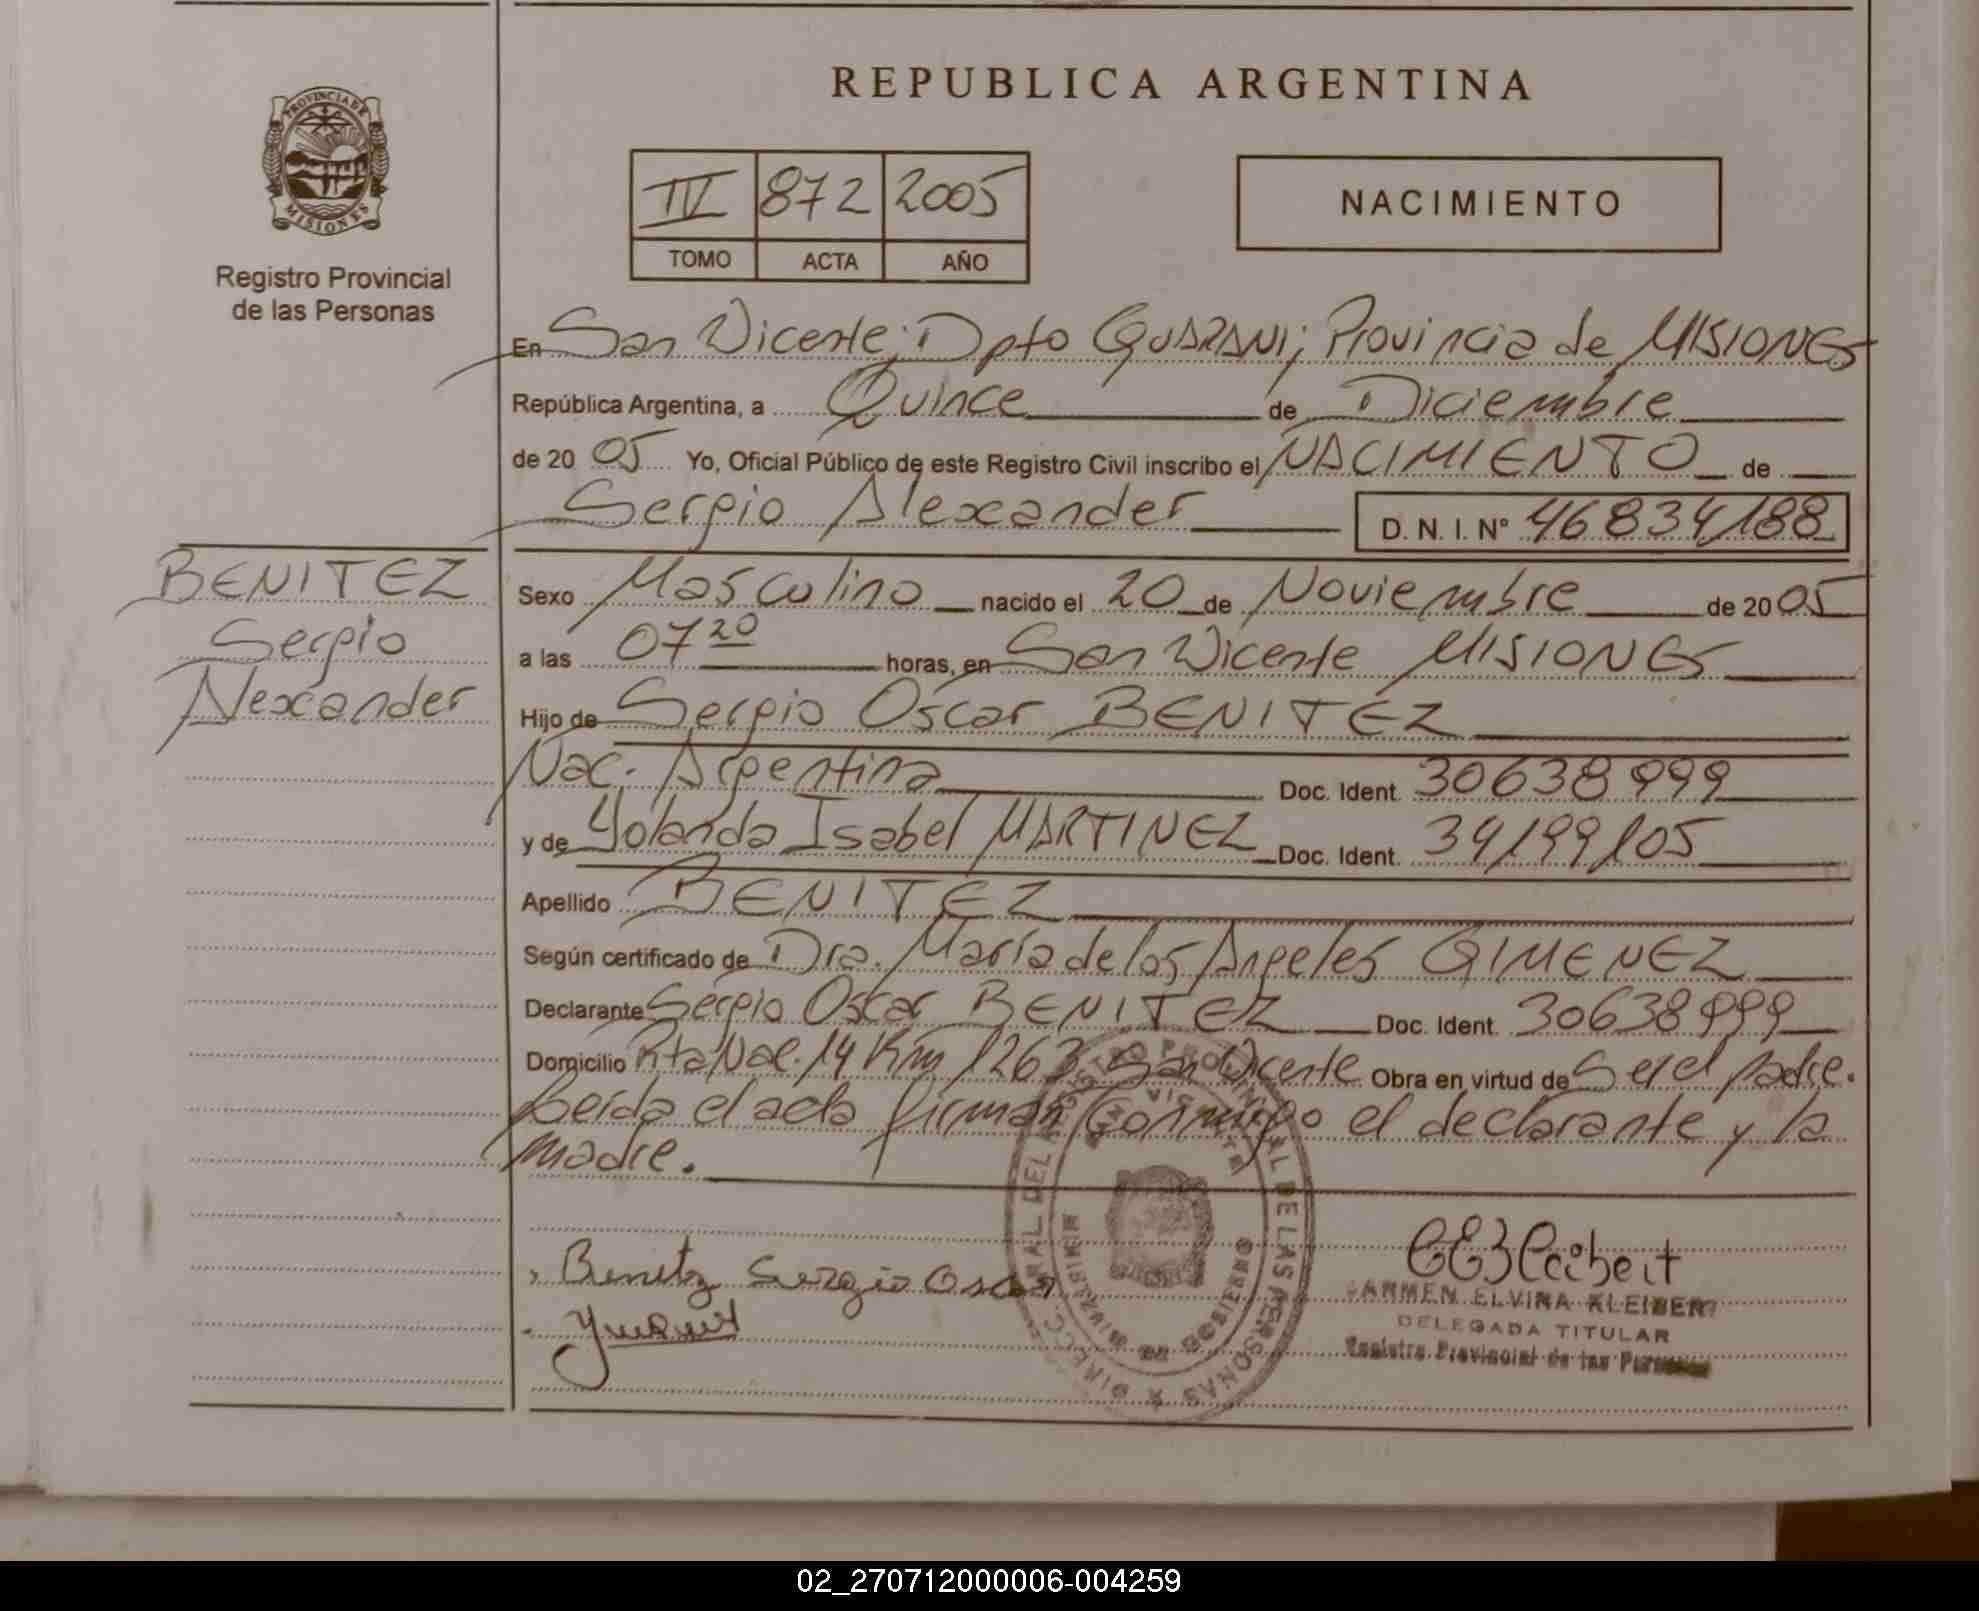 REPUBLICA ARGENTINA
PROVINCIA DE MISIONES
Registro Provincial
de las Personas
IV 872 2005
TOMO ACTA AÑO
NACIMIENTO
En San Vicente; Dpto GUARANI; Provincia de MISIONES
República Argentina, a Quince de Diciembre
de 20 05 Yo, Oficial Público de este Registro Civil inscribo el NACIMIENTO de
Sergio Alexander D. N. I. Nº 46834188
BENITEZ
Sergio
Alexander
Sexo Masculino nacido el 20 de Noviembre de 20 05
a las 07 20 horas, en San Vicente MISIONES
Hijo de Sergio Oscar BENITEZ
Nac. Argentina Doc. Ident. 30638999
y de Yolanda Isabel MARTINEZ Doc. Ident. 34199105
Apellido BENITEZ
Según certificado de Dra. María de los Angeles GIMENEZ
Declarante Sergio Oscar BENITEZ Doc. Ident. 30638999
Domicilio Rta Nac. 14 Km 1263 San Vicente Obra en virtud de Ser el padre.
Leída el acta firman conmigo el declarante y la
madre.
Benitez Sergio Oscar
CARMEN ELVINA KLEIBERT
DELEGADA TITULAR
Registro Provincial de las Personas
DIRECC. GRAL DEL REGISTRO PROVINCIAL DE LAS PERSONAS
SAN VICENTE
MINISTERIO DE GOBIERNO
02_270712000006-004259